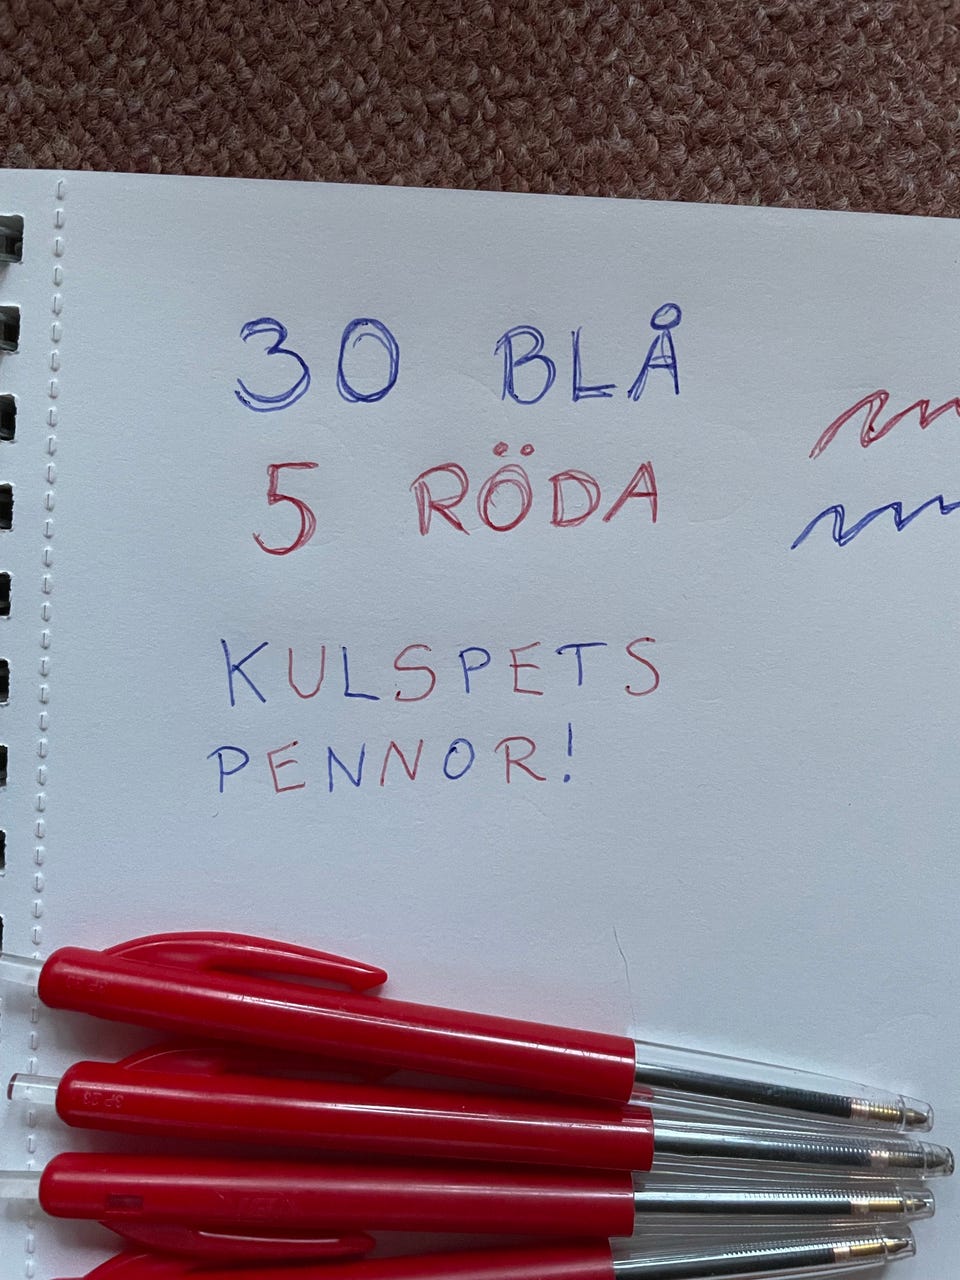 30 BLÅ
5 RÖDA
KULSPETS
PENNOR!